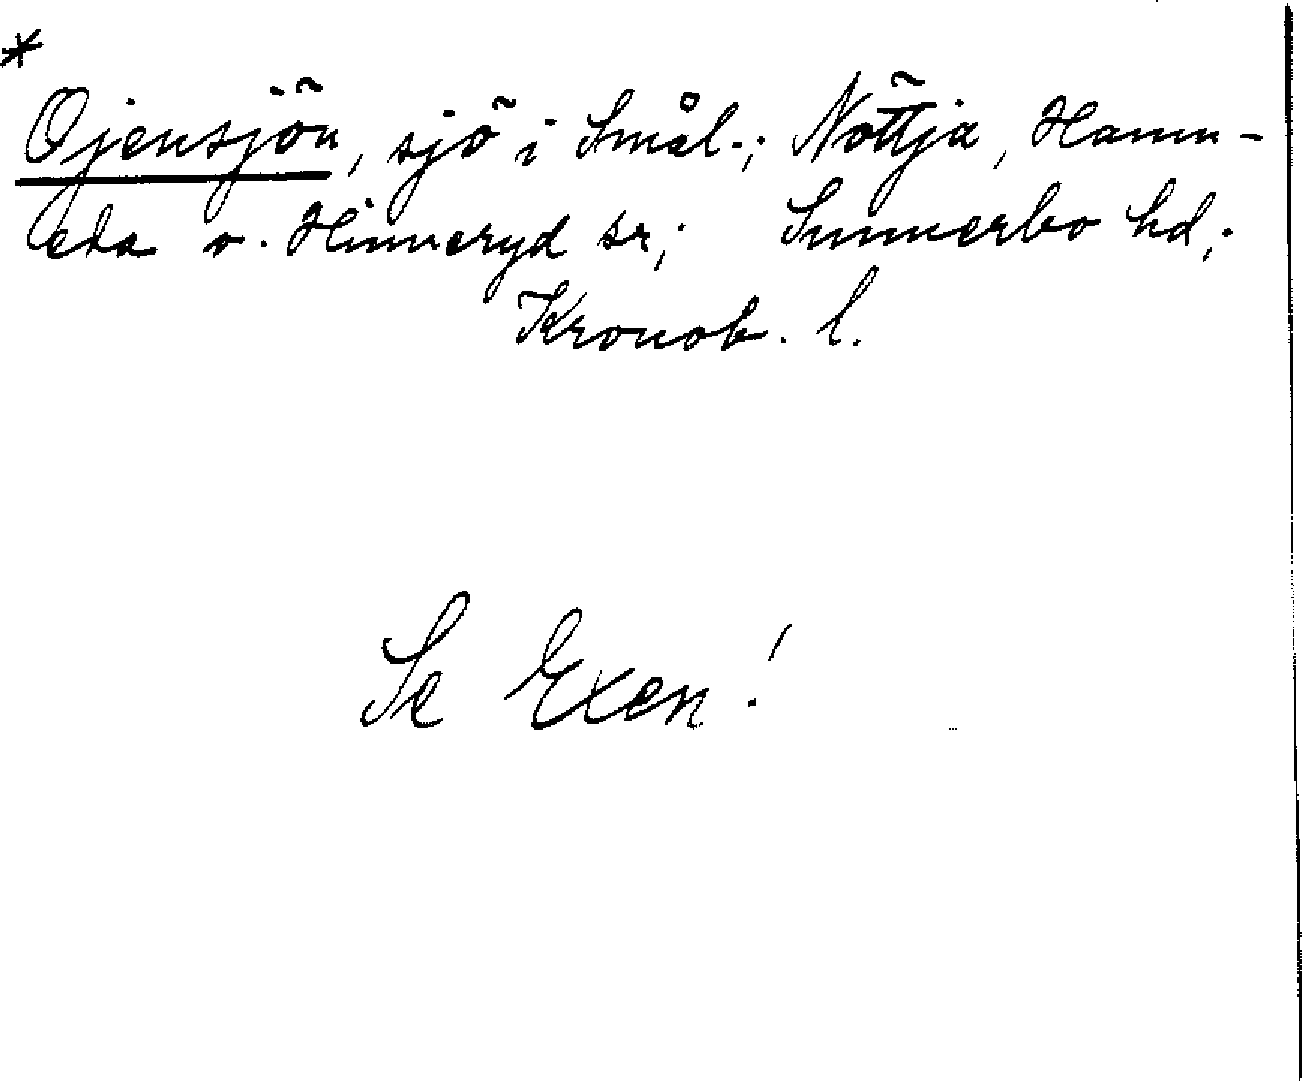 *
Ojensjön, sjö i Smål.; Nöttja, Hamn-
eda o. Hinneryd sr; Sunnerbo hd;
Kronob. l.
Se Exen!